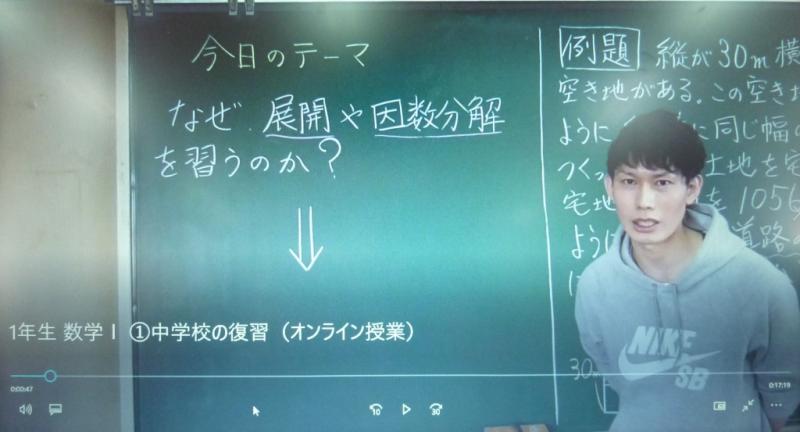 今日のテーマ
なぜ、展開や因数分解
を習うのか？
例題 縦が30m横
空き地がある。この空き地
ように
に同じ幅の
つくっ
土地を宅
宅地
を1056
ように
道路の
に
30m
NIKE
SB
1年生 数学Ⅰ ①中学校の復習（オンライン授業）
0:00:47
0:17:19
10
30